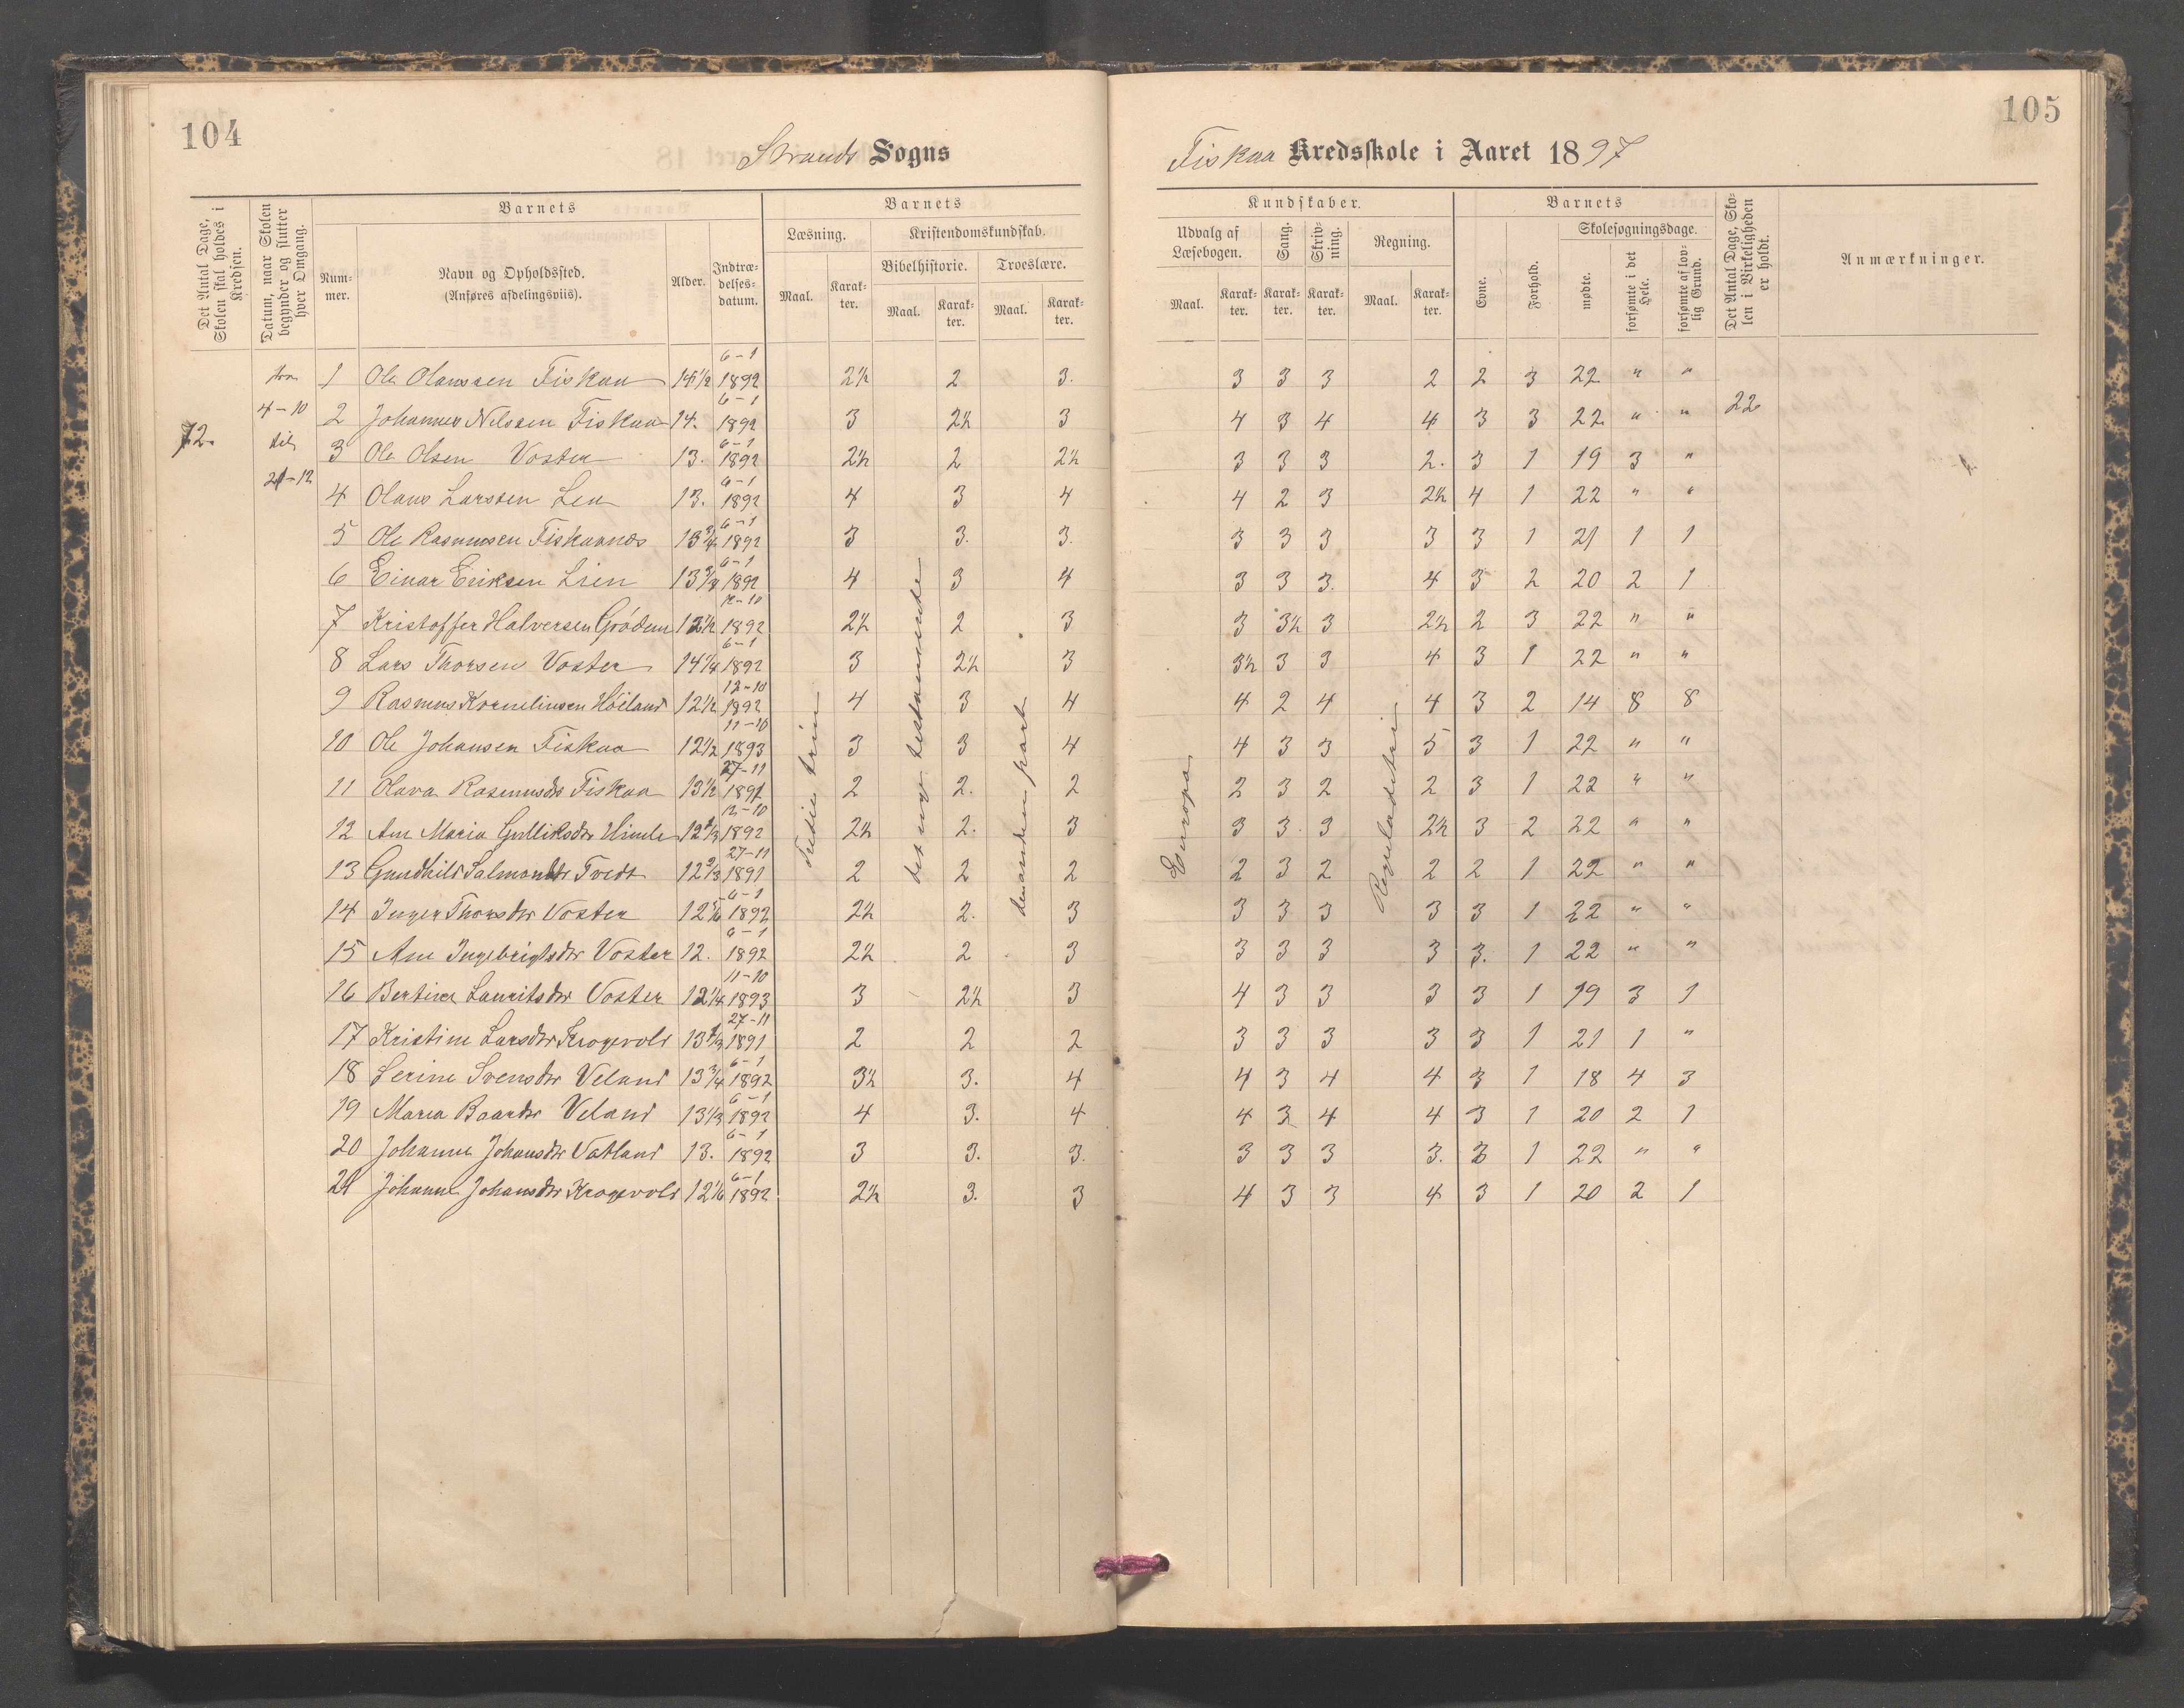 104
Strands Sogns
Det Antal Dage, Skolen skal holdes i Kredsen.
Datum, naar Skolen begynder og slutter hver Omgang.
Barnets
Barnets
Num-mer.
Navn og Opholdssted.
(Anføres afdelingsviis).
Alder.
Indtræ-delses-datum.
Læsning.
Kristendomskundskab.
Bibelhistorie.
Troeslære.
Maal.
Karak-ter.
Maal.
Karak-ter.
Maal.
Karak-ter.
72.
fra
4-10
til
21-12
tredie trin
det nye testamente
den anden part
1 Ole Olaussen Fiskaa 14 1/2 6-1 1892 2½ 2 3.
2 Johannes Nilssen Fiskaa 14. 6-1 1892 3 2½ 3
3 Ole Olsen Voster 13. 6-1 1892 2½ 2 2½
4 Olaus Larssen Lea 13. 6-1 1892 4 3 4
5 Ole Rasmussen Fiskaanes 13 3/4 6-1 1892 3 3. 3.
6 Einar Eriksen Lien 13 3/4 6-1 1892 4 3 4
7 Kristoffer Halversen Grödem 12 1/2 12-10 1892 2½ 2 3
8 Lars Thorsen Voster 14 1/4 6-1 1892 3 2½ 3
9 Rasmus Korneliusen Höiland 12 1/2 12-10 1892 4 3 4
10 Ole Johansen Fiskaa 12 1/2 11-10 1893 3 3 4
11 Olava Rasmusdr Fiskaa 13 1/2 27-11 1891 2 2. 2
12 Ane Maria Gulliksdr Himle 12 2/3 12-10 1892 2½ 2. 3
13 Gundhild Salmondr Tvedt 12 2/3 27-11 1891 2 2 2
14 Inger Thorsdr Voster 12 5/6 6-1 1892 2½ 2. 3
15 Ane Ingebrigtsdr Voster 12. 6-1 1892 2½ 2 3
16 Bertine Lauritsdr Voster 12 1/4 11-10 1893 3 2½ 3
17 Kristine Larsdr Krogevold 13 2/3 27-11 1891 2 2 2
18 Serine Svensdr Veland 13 3/4 6-1 1892 3½ 3. 4
19 Maria Baardr Veland 13 1/3 6-1 1892 4 3. 4
20 Johanne Johansdr Vatland 13. 6-1 1892 3 3. 3.
21 Johanne Johansdr Krogevold 12 1/6 6-1 1892 2½ 3. 3
105
Fiskaa Kredsskole i Aaret 1897
Kundskaber.
Barnets
Det Antal Dage, Sko-len i Virkeligheden er holdt.
Anmærkninger.
Udvalg af Læsebogen.
Sang.
Skriv-ning.
Regning.
Evne.
Forhold.
Skolesøgningsdage.
Maal.
Karak-ter.
Karak-ter.
Karak-ter.
Maal.
Karak-ter.
mødte.
forsømte i det Hele.
forsømte af lov-lig Grund.
Europa
Reguladetri
22
3 3 3 2 2 3 22 " "
4 3 4 4 3 3 22 " "
3 3 3 2. 3 1 19 3 "
4 2 3 2½ 4 1 22 " "
3 3 3 3 3 1 21 1 1
3 3 3. 4 3 2 20 2 1
3 3½ 3 2½ 2 3 22 " "
3½ 3 3 4 3 1 22 " "
4 2 4 4 3 2 14 8 8
4 3 3 5 3 1 22 " "
2 3 2 2 3 1 22 " "
3 3 3 2½ 3 2 22 " "
2 3 2 2 2 1 22 " "
3 3 3 3 3 1 22 " "
3 3 3 3 3. 1 22 " "
4 3 3 3 3 1 19 3 1
3 3 3 3 3 1 21 1 "
4 3 4 4 3 1 18 4 3
4 3 4 4 3 1 20 2 1
3 3 3 3. 3 1 22 " "
4 3 3 4 3 1 20 2 1